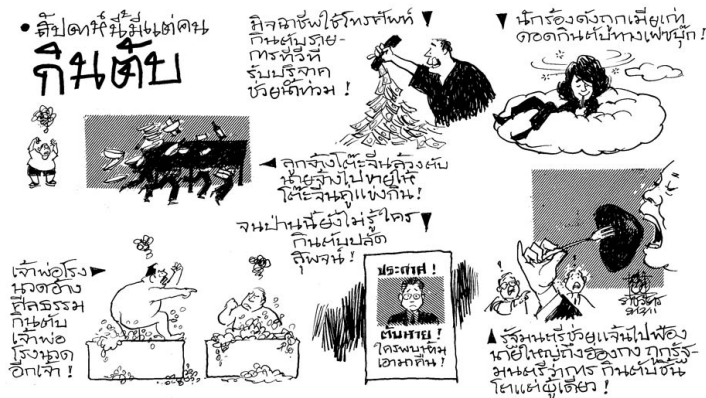 • สัปดาห์นี้มีแต่คน
กินตับ
มิจฉาชีพใช้โทรศัพท์
กินตับราย-
การทีวีที่
รับบริจาค
ช่วยน้ำท่วม !
นักร้องดังถูกเมียเก่า
ตอดกินตับทางเฟซบุ๊ก !
ลูกจ้างโต๊ะจีนล้วงตับ
นายจ้างไปขายให้
โต๊ะจีนคู่แข่งกิน !
จนป่านนี้ยังไม่รู้ใคร
กินตับปลัด
สุพจน์ !
เจ้าพ่อโรง
นวดอ้าง
ศีลธรรม
กินตับ
เจ้าพ่อ
โรงนวด
อีกเจ้า !
ประกาศ !
ตับหาย !
ใครพบเห็น
เอามาคืน !
รัฐมนตรีช่วยแจ้นไปฟ้อง
นายใหญ่ถึงฮ่องกง ถูกรัฐ-
มนตรีว่าการ กินตับชิ้น
โตแต่ผู้เดียว !